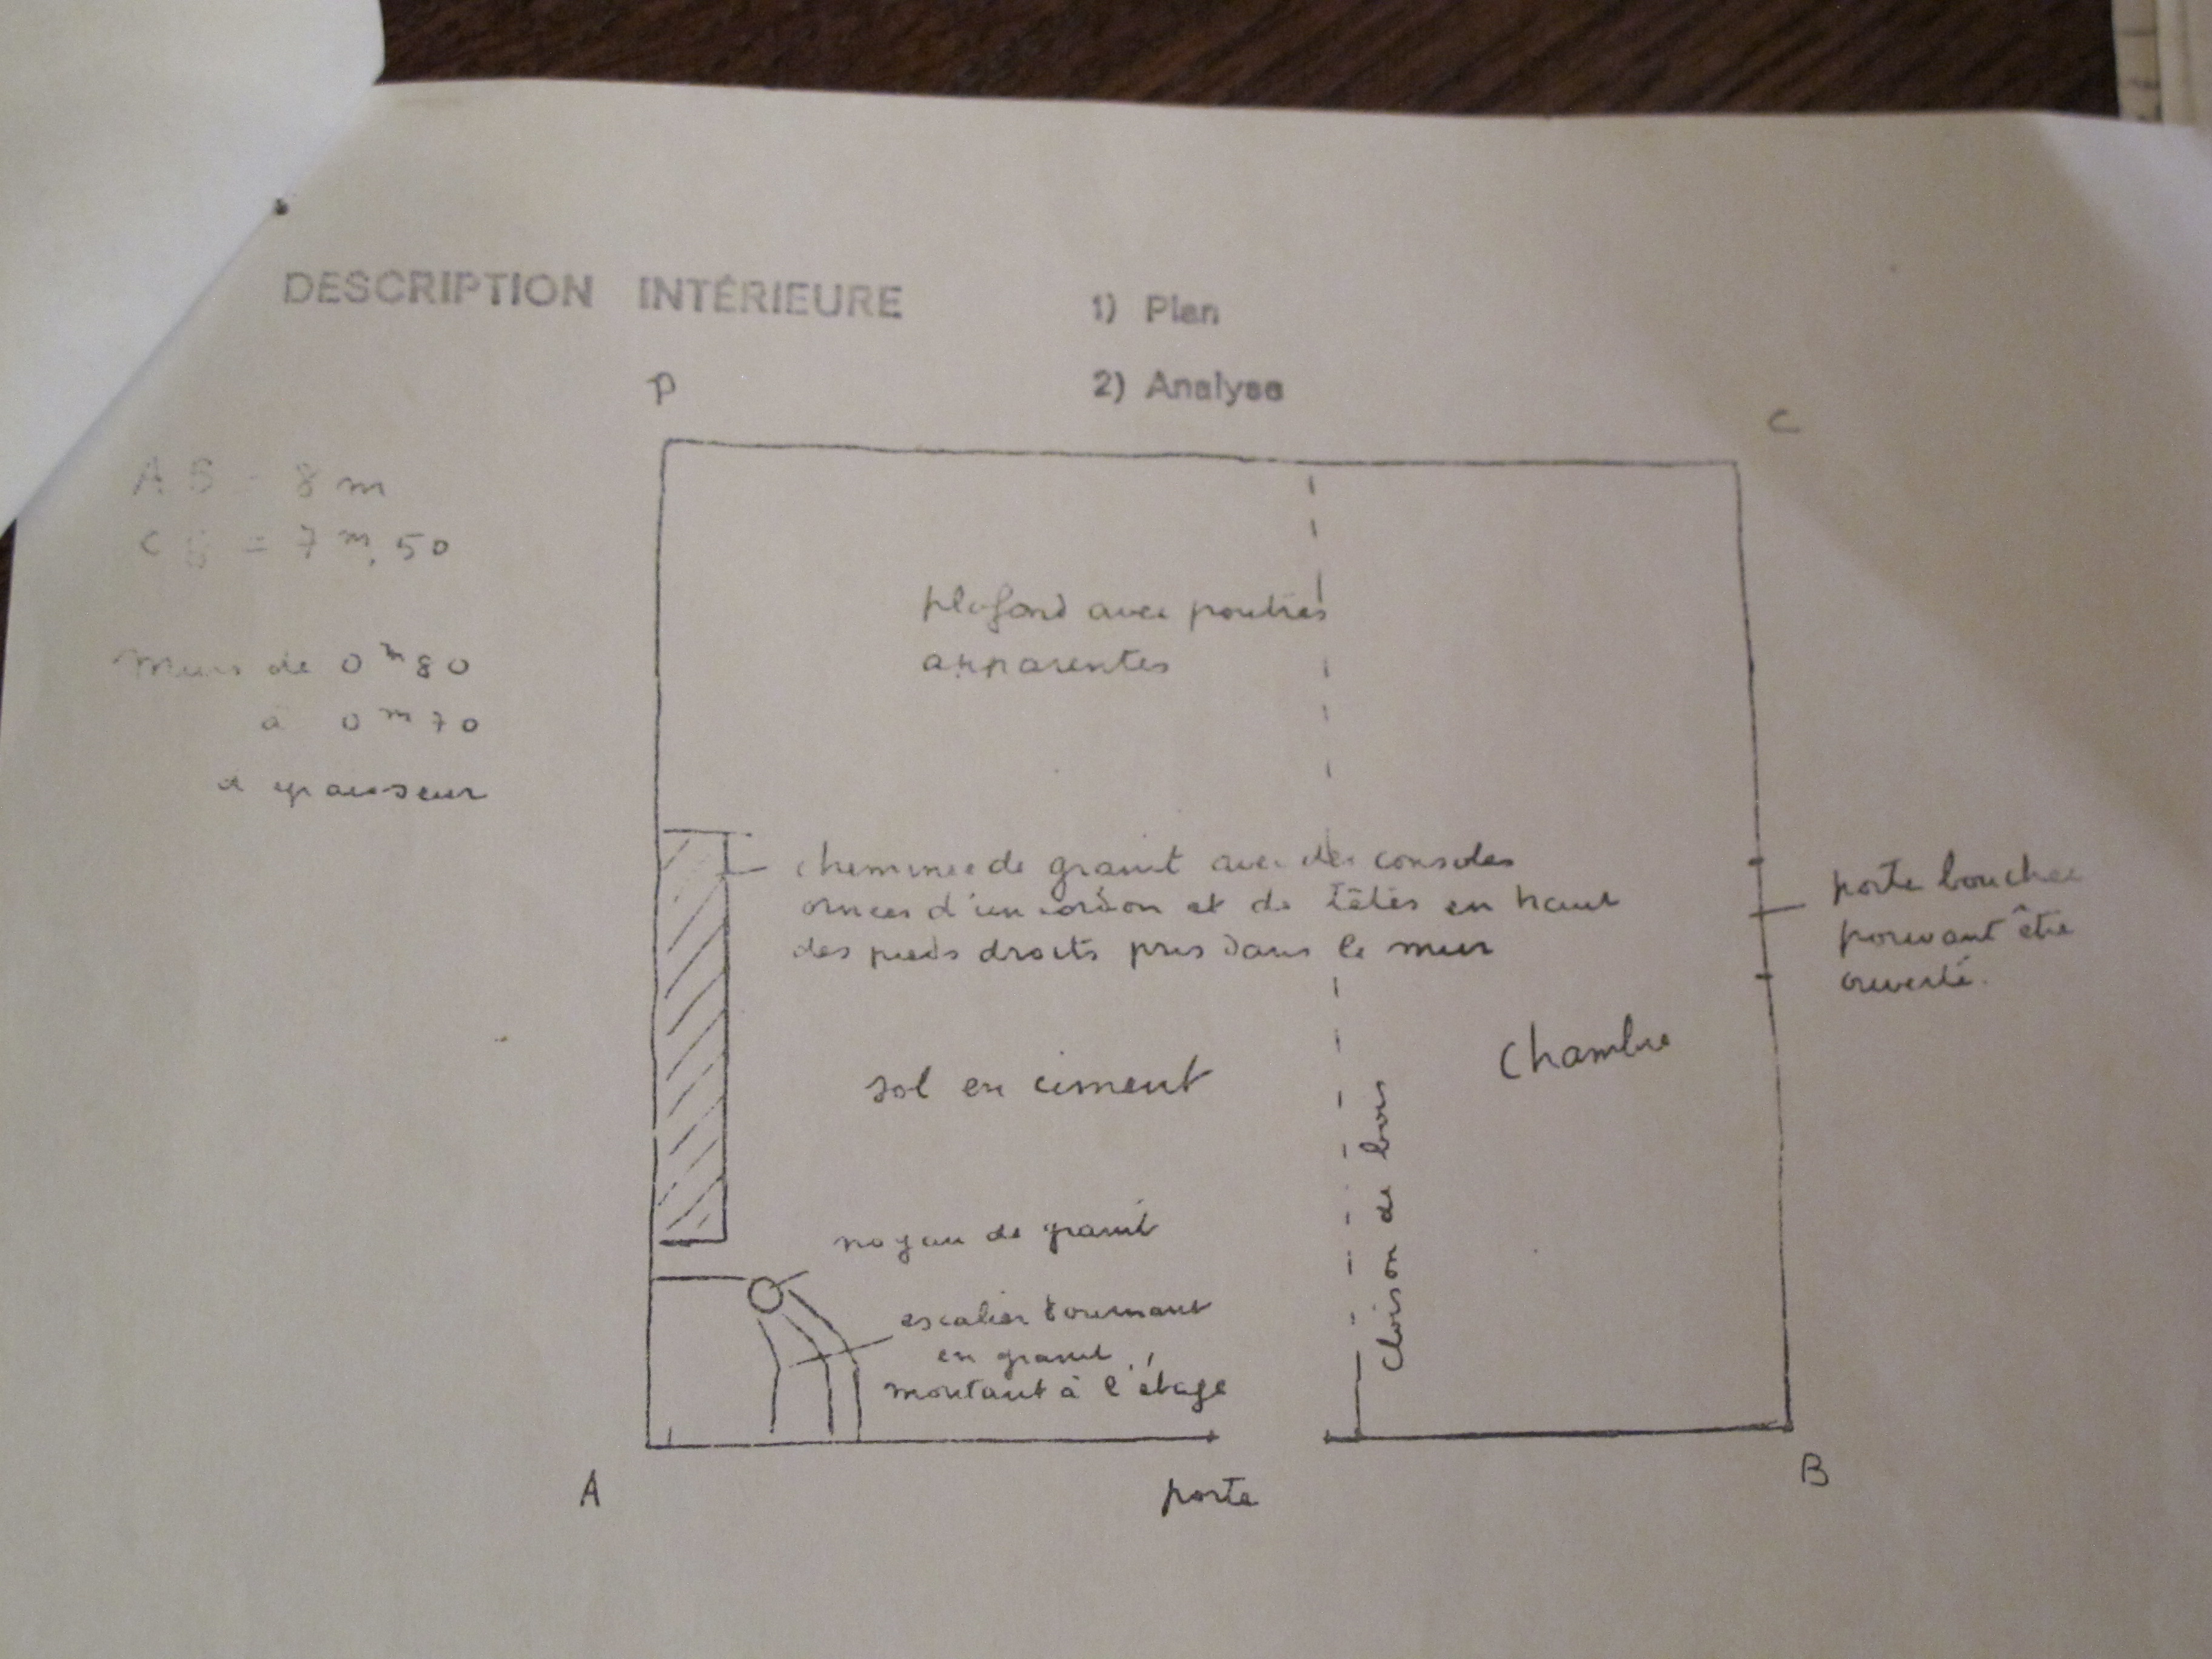 DESCRIPTION INTÉRIEURE
1) Plan
2) Analyse
P
C
AB = 8 m
CB = 7 m, 50
Murs de 0 m 80
à 0 m 70
d'épaisseur
plafond avec poutres
apparentes
cheminée de granit avec des consoles
ornées d'un cordon et de têtes en haut
des pieds droits pris dans le mur
porte bouchée
pouvant être
ouverte.
sol en ciment
chambre
cloison de bois
noyau de granit
escalier tournant
en granit
montant à l'étage
A
porte
B